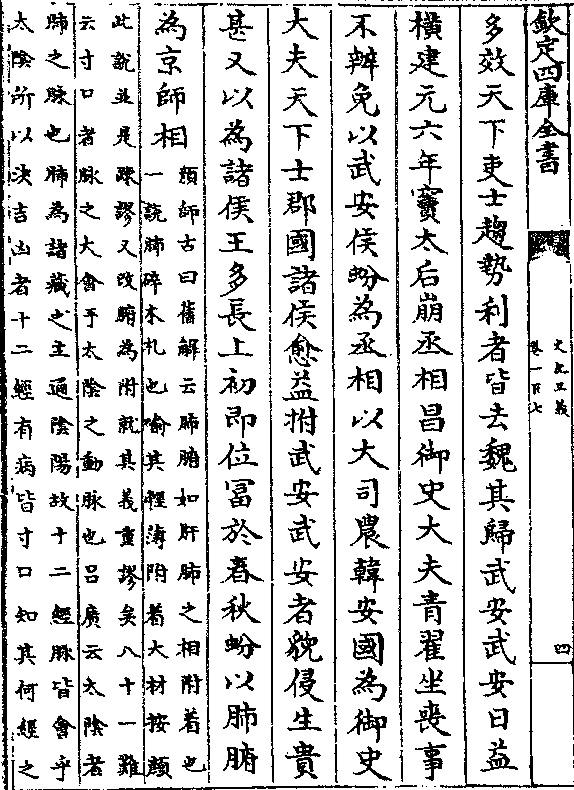 欽定四庫全書
史記正義
卷一百七
四
多效天下吏士趨勢利者皆去魏其歸武安武安日益
橫建元六年竇太后崩丞相昌御史大夫青翟坐喪事
不辦免以武安侯蚡為丞相以大司農韓安國為御史
大夫天下士郡國諸侯愈益附武安武安者貌侵生貴
甚又以為諸侯王多長上初即位富於春秋蚡以肺腑
為京師相
顏師古曰舊解云肺腑如肝肺之相附著也
一說肺碎木札也喻其輕薄附著大材按顏
此說並是疎謬又改腑為附就其義重謬矣八十一難
云寸口者脉之大會手太陰之動脉也呂廣云太陰者
肺之脉也肺為諸藏之主通陰陽故十二經脉皆會乎
太陰所以决吉凶者十二經有病皆寸口知其何經之